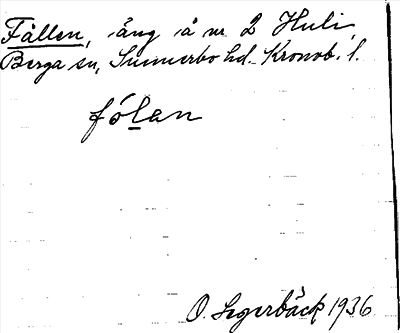 Fållen, äng å nr 2 Huli,
Berga sn, Sunnerbo hd. Kronob. l.
fólan
O. Segerbäck 1936.